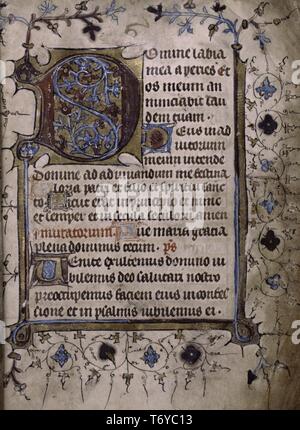 Domine labia
mea aperies Et
os meum an
nunciabit lau
dem tuam.
Deus in ad
iutorium
meum intende
Domine ad adiuuandum me festina
Gloria patri et filio et spiritui sanc
to Sicut erat in principio et nunc
et semper et in secula seculorum amen
Inuitatorium. Aue maria gracia
plena dominus tecum. ps
Uenite exultemus domino iu
bilemus deo salutari nostro
preocupemus faciem eius in confes
sione et in psalmis iubilemus ei.
alamy
T6YC13